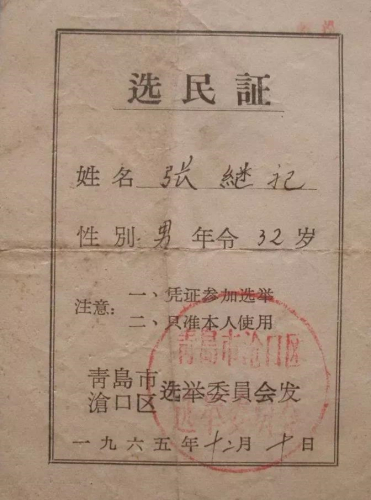 选民証
姓名 张継祀
性别 男 年令 32 岁
注意：
一、凭证参加选举
二、只准本人使用
青島市
滄口区
选举委員会发
一九六五年十二月十日
青島市滄口区
选举委員会